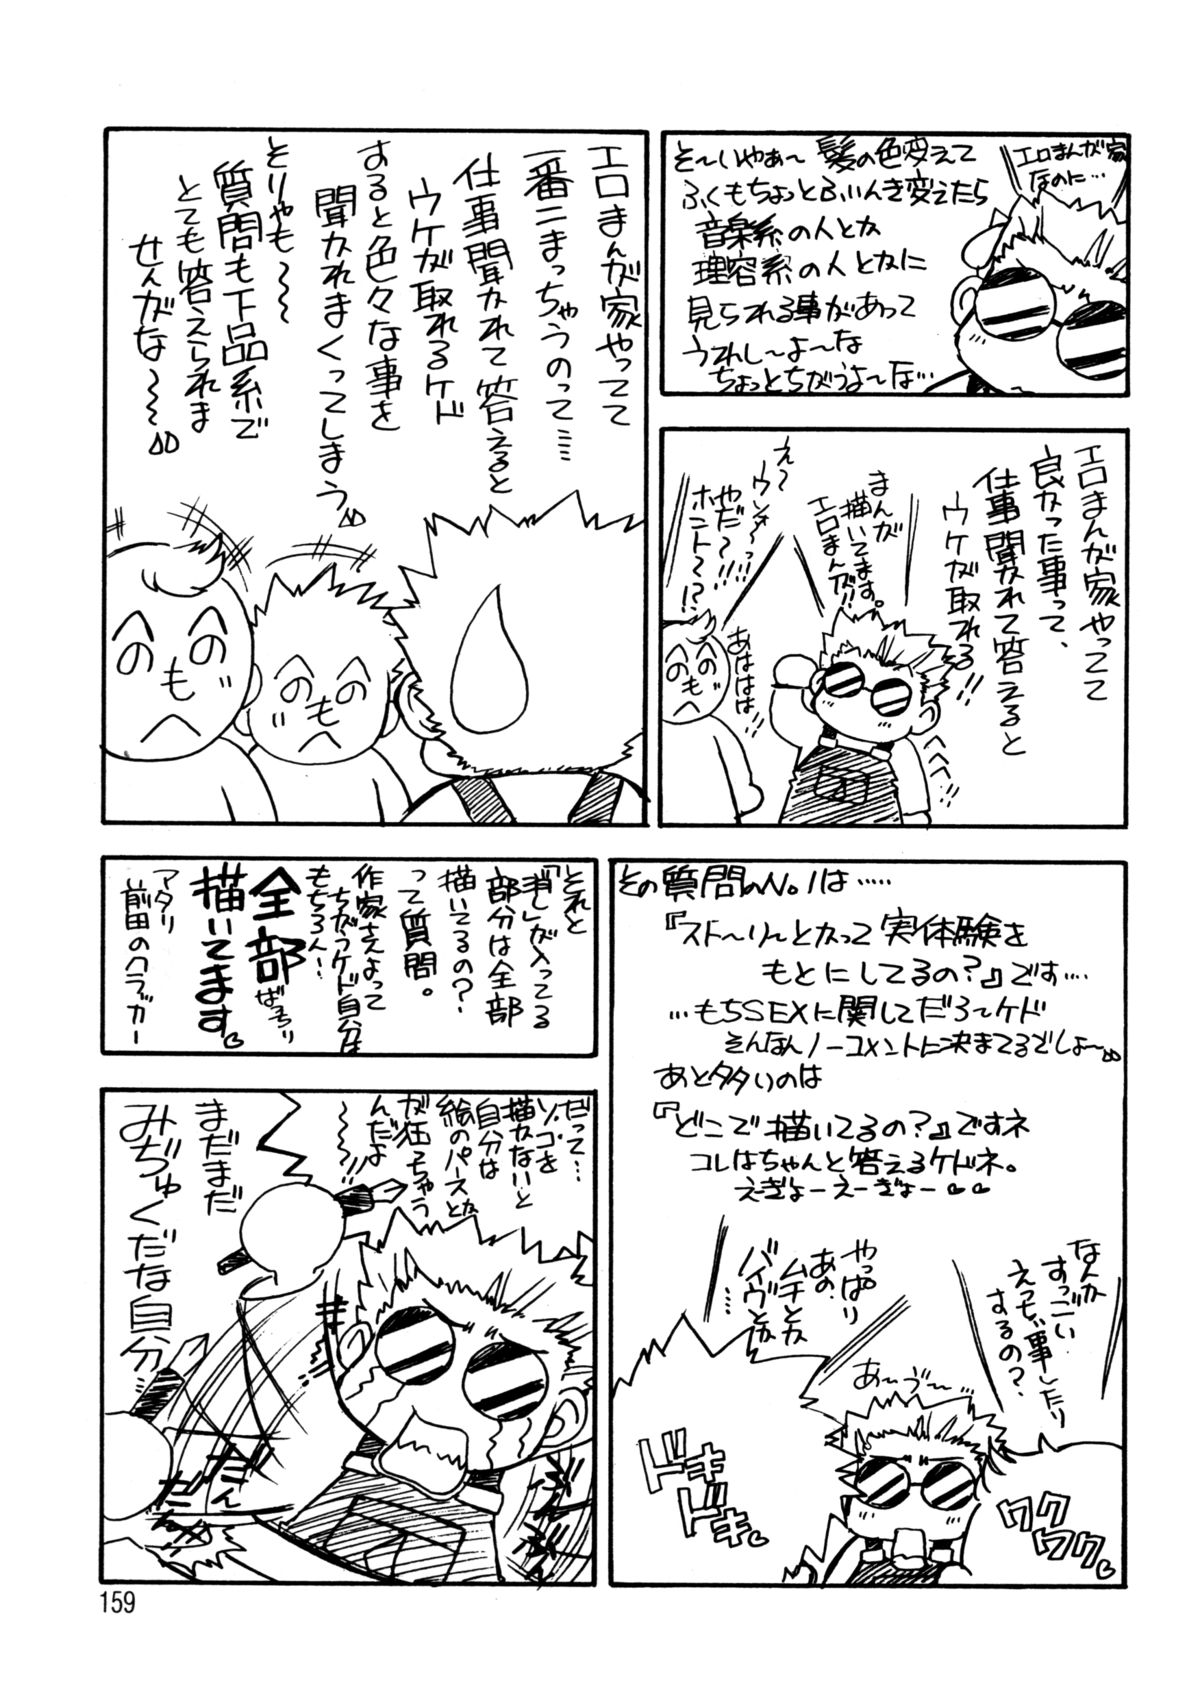 エロまんが家
なのに…
そ～いやぁ～髪の色変えて
ふくもちょっとふいんき変えたら
音楽系の人とか
理容系の人とかに
見られる事があって
うれし～よ～な
ちょっとちがうよ～な…
エロまんが家やってて
良かった事って、
仕事聞かれて答えると
ウケが取れる!!
まんが
描いてます。
エロまんが!!
え～
ウッソ～っ!!
やだ～!!
ホント～!?
あははは!!
へのへのもへ
エロまんが家やってて
一番こまっちゃうのって……
仕事聞かれて答えると
ウケが取れるケド
すると色々な事を
聞かれまくってしまう
とりゃも～～
質問も下品系で
とても答えられま
せんがな～～
へのへのもへ
へのへのもへ
その質問のNo.1は……
『スト～リ～とかって実体験を
もとにしてるの?』です……
…もちSEXに関してだろ～ケド
そんなんノーコメントに決まてるでしょ～
あと多いのは
『どこで描いてるの?』ですネ
コレはちゃんと答えるケドネ。
えぎょーえーぎょー♡♡
なんか
すっごい
えっちぃ事したり
するの?
やっぱり
あの、
ムチとか
バイヴとか
……
あ～う～
ドキ
ドキ♡
ワク
ワク♡
それと
「消し」が入ってる
部分は全部
描いてるの?
って質問。
作家さんよって
ちがうケド自分は
もちろん!
全部ばっちり
描いてます♡
アタリ
前田のクラッカー
だって…
ソコを
描かないと
自分は
絵のパースとか
が狂っちゃう
んだよ
～～～!!
まだまだ
みぢゅくだな自分…
だん
だん
159